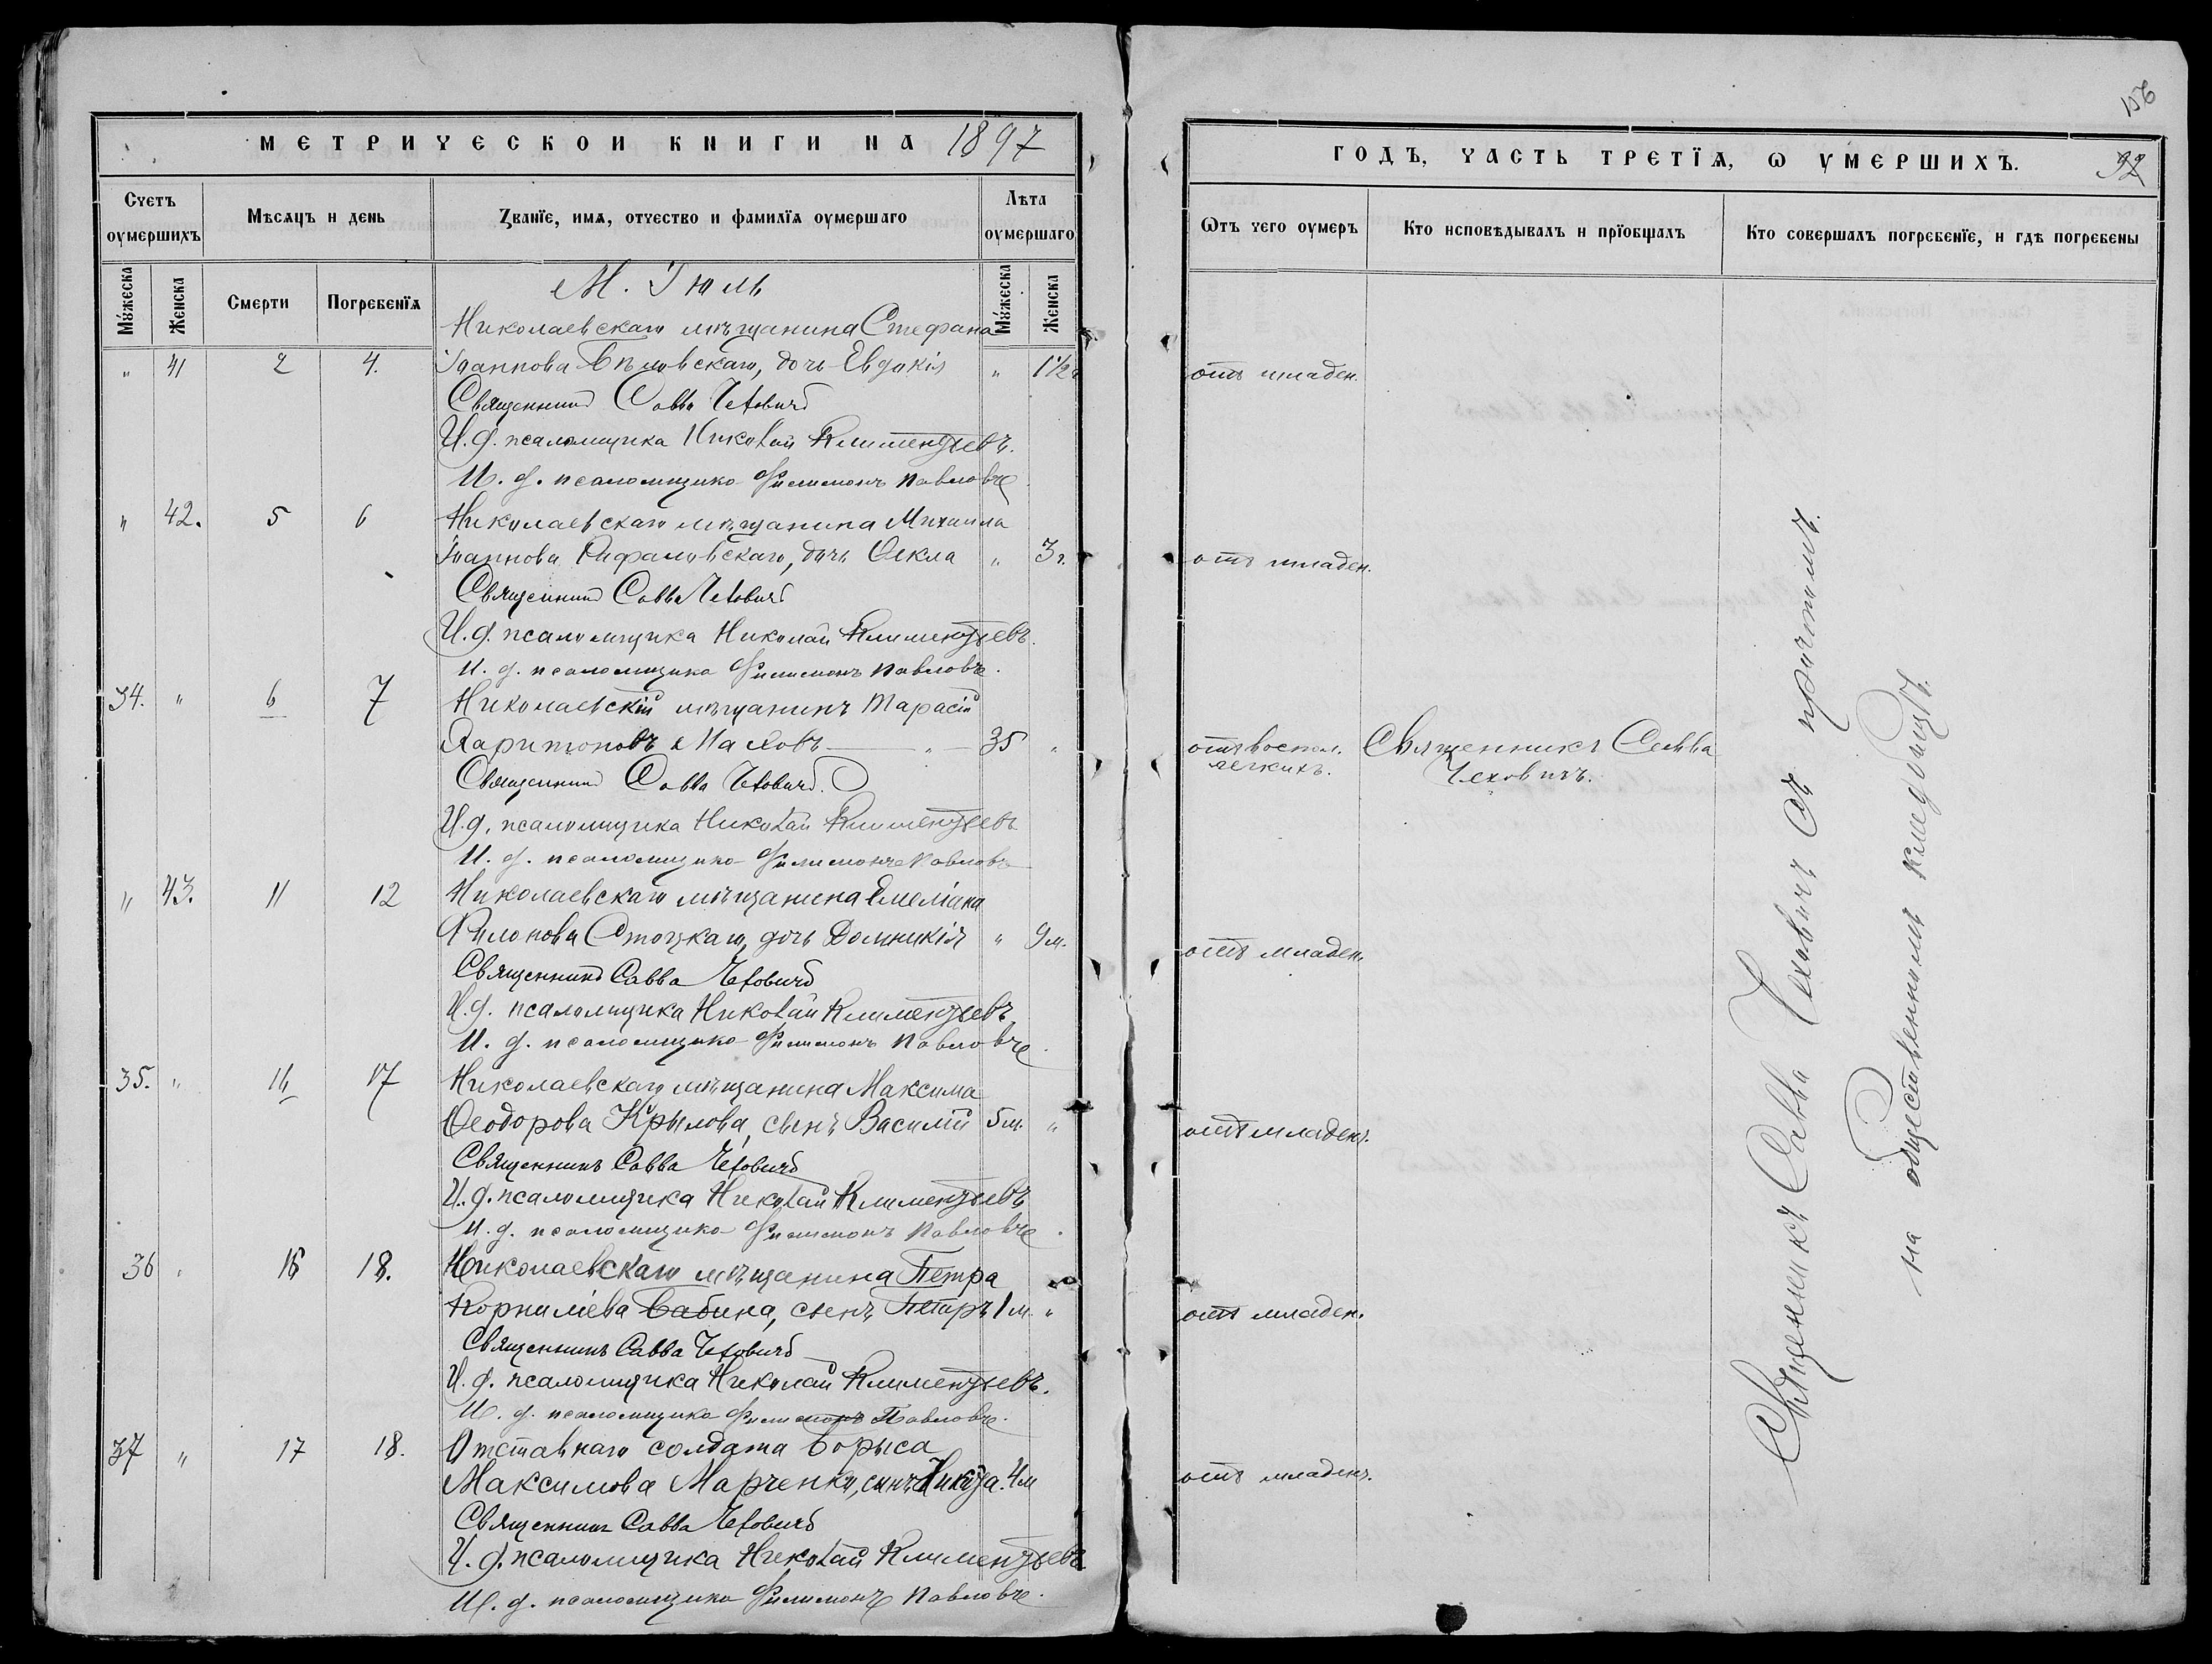 МЕТРИЧЕСКОЙ КНИГИ НА 1897
Счетъ оумершихъ
Мѣсяцъ и день
Званїе, имя, отчество и фамилїя оумершаго
Лѣта оумершаго
Мужеска
Женска
Смерти
Погребенїя
Мужеска
Женска
М. Іюль
Николаевскаго мѣщанина Стефана
" 41 2 4. Іоаннова дочь Евдокія " 1½
Священникъ Савва Чеховичъ
И. д. псаломщика Николай Климентьевъ.
И. д. псаломщика Филимонъ Павловъ
" 42. 5 6 Николаевскаго мѣщанина Михаила
Іоаннова дочь Ѳекла " 3 г.
Священникъ Савва Чеховичъ
И. д. псаломщика Николай Климентьевъ.
И. д. псаломщика Филимонъ Павловъ.
34. " 6 7 Николаевскій мѣщанинъ Тарасій
Харитоновъ Масловъ 35 "
Священникъ Савва Чеховичъ.
И. д. псаломщика Николай Климентьевъ
И. д. псаломщика Филимонъ Павловъ
" 43. 11 12 Николаевскаго мѣщанина Емеліана
Филонова Стоцкаго, дочь Домникія " 9 м.
Священникъ Савва Чеховичъ
И. д. псаломщика Николай Климентьевъ
И. д. псаломщика Филимонъ Павловъ.
35. " 16 17 Николаевскаго мѣщанина Максима
Ѳеодорова Крылова, сынъ Василій 5 м. "
Священникъ Савва Чеховичъ
И. д. псаломщика Николай Климентьевъ
И. д. псаломщика Филимонъ Павловъ.
36 " 16 18. Николаевскаго мѣщанина Петра
Корниліева Бабина, сынъ Петръ 1 м. "
Священникъ Савва Чеховичъ
И. д. псаломщика Николай Климентьевъ.
И. д. псаломщика Филимонъ Павловъ.
37 " 17 18. Отставнаго солдата Бориса
Максимова Марченко, сынъ Никита. 4 м
Священникъ Савва Чеховичъ
И. д. псаломщика Николай Климентьевъ
И. д. псаломщика Филимонъ Павловъ.
156
ГОДЪ, ЧАСТЬ ТРЕТЇЯ, Ѡ УМЕРШИХЪ.
32
Ѿтъ чего оумеръ
Кто исповѣдывалъ и прїобщалъ
Кто совершалъ погребенїе, и гдѣ погребены
отъ младен.
отъ младен.
отъ воспол. легкихъ.
Священникъ Савва Чеховичъ.
отъ младен.
отъ младен.
отъ младен.
отъ младен.
Священникъ Савва Чеховичъ съ причтомъ.
на общественномъ кладбищѣ.